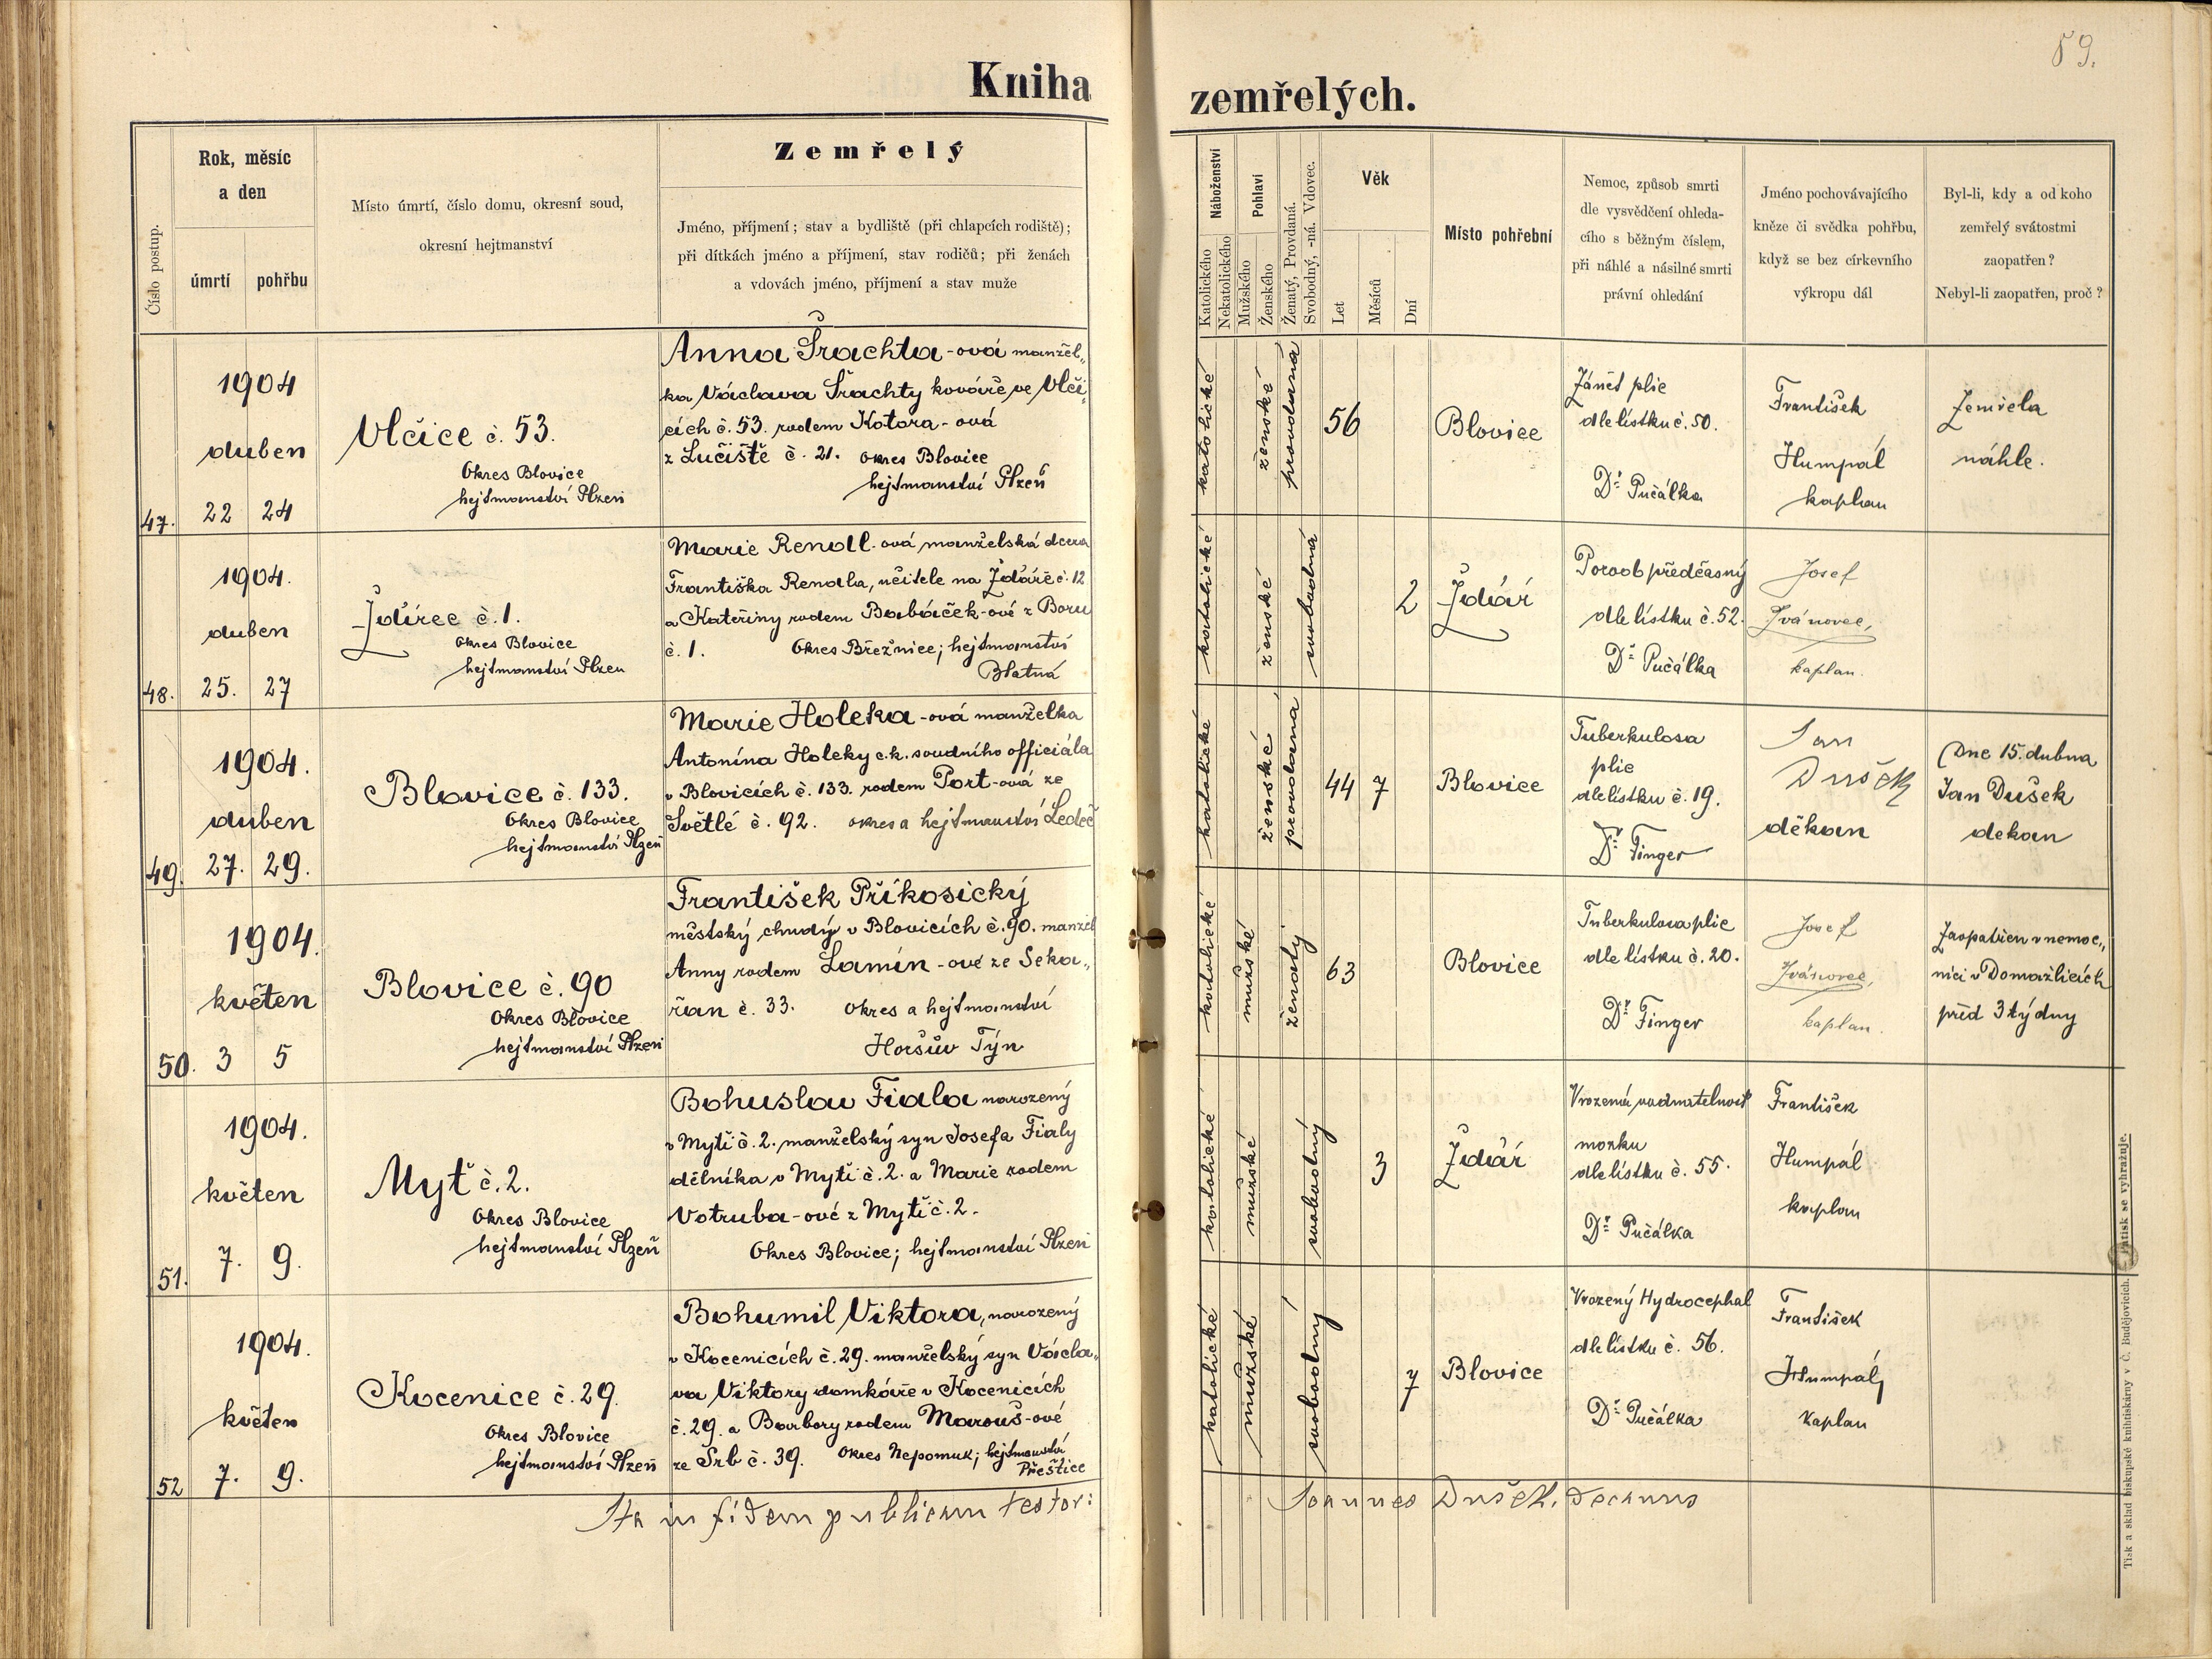 89.
Kniha zemřelých.
Číslo postup.
Rok, měsíc
a den
úmrtí
pohřbu
Místo úmrtí, číslo domu, okresní soud,
okresní hejtmanství
Zemřelý
Jméno, příjmení; stav a bydliště (při chlapcích rodiště);
při dítkách jméno a příjmení, stav rodičů; při ženách
a vdovách jméno, příjmení a stav muže
Náboženství
Katolického
Nekatolického
Pohlaví
Mužského
Ženského
Ženatý, Provdaná.
Svobodný, -ná. Vdovec.
Věk
Let
Měsíců
Dní
Místo pohřební
Nemoc, způsob smrti
dle vysvědčení ohleda-
cího s běžným číslem,
při náhlé a násilné smrti
právní ohledání
Jméno pochovávajícího
kněze či svědka pohřbu,
když se bez církevního
výkropu dál
Byl-li, kdy a od koho
zemřelý svátostmi
zaopatřen?
Nebyl-li zaopatřen, proč?
47.
1904
duben
22 24
Vlčice č. 53.
Okres Blovice
hejtmanství Plzeň
Anna Šrachta-ová manžel„
ka Václava Šrachty kováře ve Vlči„
cích č. 53. rodem Kotora-ová
z Lučiště č. 21. Okres Blovice
hejtmanství Plzeň
katolické
ženské
provdaná
56
Blovice
Zánět plic
dle lístku č. 50.
Dr. Pučálka
František
Humpál
kaplan
Zemřela
náhle.
48.
1904.
duben
25. 27
Ždírec č. 1.
Okres Blovice
hejtmanství Plzeň
Marie Rendl-ová manželská dcera
Františka Rendla, učitele na Ždáře č. 12
a Kateřiny rodem Babáček-ové z Boru
č. 1. Okres Březnice; hejtmanství
Blatná
katolické
ženské
svobodná
2
Ždár
Porod předčasný
dle lístku č. 52.
Dr. Pučálka
Josef
Ivánovec,
kaplan.
49.
1904.
duben
27. 29.
Blovice č. 133.
Okres Blovice
hejtmanství Plzeň
Marie Holeka-ová manželka
Antonína Holeky c.k. soudního officiála
v Blovicích č. 133. rodem Port-ová ze
Světlé č. 92. okres a hejtmanství Ledeč
katolické
ženské
provdaná
44 7
Blovice
Tuberkulosa
plic
dle lístku č. 19.
Dr. Finger
Jan
Dušek
děkan
Dne 15. dubna
Jan Dušek
dekan
50.
1904.
květen
3 5
Blovice č. 90
Okres Blovice
hejtmanství Plzeň
František Příkosický
městský chudý v Blovicích č. 90. manžel
Anny rodem Lamín-ové ze Seka„
řan č. 33. Okres a hejtmanství
Horšův Týn
katolické
mužské
ženatý
63
Blovice
Tuberkulosa plic
dle lístku č. 20.
Dr. Finger
Josef
Ivánovec,
kaplan.
Zaopatřen v nemoc„
nici v Domažlicích
před 3 týdny
51.
1904.
květen
7. 9.
Myť č. 2.
Okres Blovice
hejtmanství Plzeň
Bohuslav Fiala narozený
v Myti č. 2. manželský syn Josefa Fialy
dělníka v Myti č. 2. a Marie rodem
Votruba-ové z Myti č. 2.
Okres Blovice; hejtmanství Plzeň
katolické
mužské
svobodný
3
Ždár
Vrozená
mozku
dle lístku č. 55.
Dr. Pučálka
František
Humpál
kaplan
52
1904.
květen
7. 9.
Kocenice č. 29.
Okres Blovice
hejtmanství Plzeň
Bohumil Viktora, narozený
v Kocenicích č. 29. manželský syn Václa„
va Viktory domkáře v Kocenicích
č. 29. a Barbory rodem Marouš-ové
ze Srb č. 39. Okres Nepomuk; hejtmanství
Přeštice
katolické
mužské
svobodný
7
Blovice
Vrozený Hydrocephal
dle lístku č. 56.
Dr. Pučálka
František
Humpál,
kaplan
Ita in fidem publicam testor:
Joannes Dušek, decanus
Tisk a sklad biskupské knihtiskárny v Č. Budějovicích. – Patisk se vyhražuje.